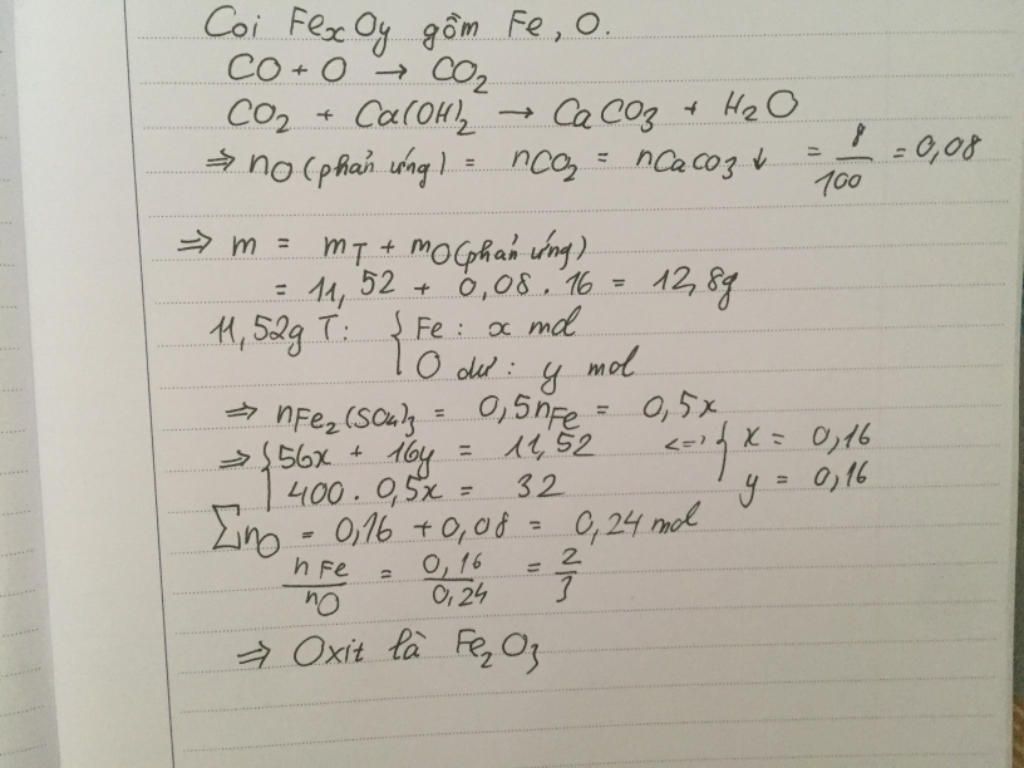 Coi FexOy gồm Fe, O.
CO + O → CO2
CO2 + Ca(OH)2 → CaCO3 + H2O
⇒ nO (phản ứng) = nCO2 = nCaCO3↓ = 8/100 = 0,08
⇒ m = mT + mO (phản ứng)
= 11,52 + 0,08 . 16 = 12,8g
11,52g T: { Fe : x mol
O dư : y mol
⇒ nFe2(SO4)3 = 0,5nFe = 0,5x
⇒ { 56x + 16y = 11,52 <=> { x = 0,16
400 . 0,5x = 32 y = 0,16
∑nO = 0,16 + 0,08 = 0,24 mol
nFe/nO = 0,16/0,24 = 2/3
⇒ Oxit là Fe2O3